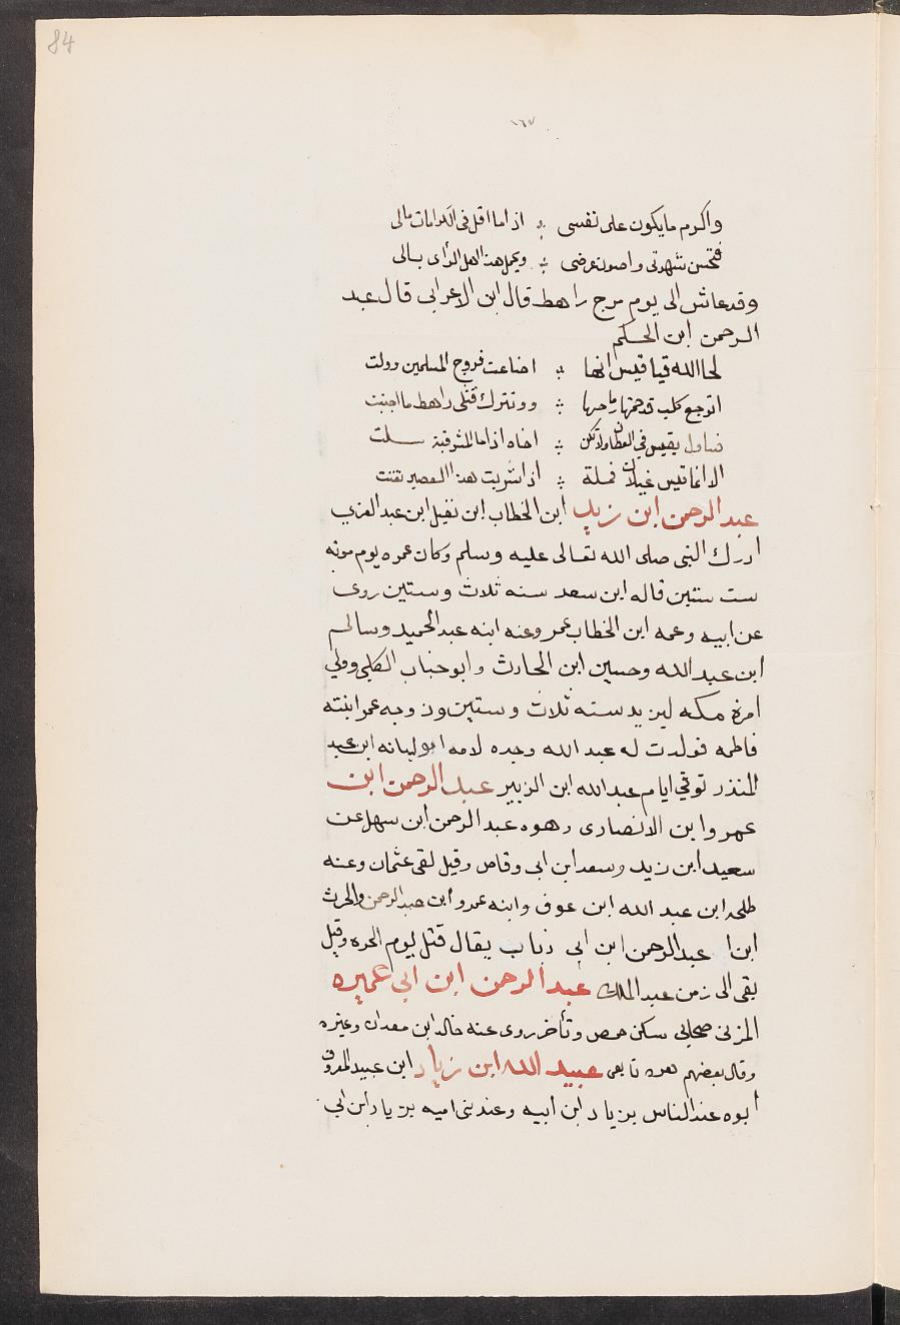 84
١٦٧
واكرم مايكون على نفسى ؞ اذا ما اقل فى الكرامات مالى
فتحسن شهرتى واصون عرضى ؞ ويجمل هذا اهل الرأى بالى
وقد عاش الى يوم مرج راهط قال ابن الاعرابى قال عبد
الرحمن ابن الحكم
لحا الله قيا قيس انها ؞ اضاعت فروج المسلمين وولت
اترجع كلب قد حمتها رماحها ؞ وتترك قتلى راهط ما اجنت
بقيس فى ؞ اخاه اذا ما المشرفية سلت
الا انما قيس غيلان قملة ؞ اذا شربت هذا العصير تغنت
عبد الرحمن ابن زيد ابن الخطاب ابن نفيل ابن عبد العزى
ادرك النبى صلى الله تعالى عليه وسلم وكان عمره يوم موته
ست سنين قاله ابن سعد سنه ثلاث وستين روى
عن ابيه وعمه ابن الخطاب عمر وعنه ابنه عبد الحميد وسالم
ابن عبد الله وحسين ابن الحارث وابو جناب الكلبى وولى
امرة مكه ليزيد سنه ثلاث وستين وزوجه عمر ابنته
فاطمه فولدت له عبد الله وجده لامه ابو لبانه ابن عبد
المنذر توفى ايام عبد الله ابن الزبير عبد الرحمن ابن
عمرو ابن الانصارى وهوه عبد الرحمن ابن سهل عن
سعيد ابن زيد وسعد ابن ابى وقاص وقيل لقى عثمان وعنه
طلحه ابن عبد الله ابن عوف وابنه عمرو ابن عبد الرحمن والحرث
ابن ا عبد الرحمن ابن ابى ذباب يقال قتل يوم الحره وقيل
بقى الى زمن عبد الملك عبد الرحمن ابن ابى عميره
المزنى صحابى سكن حمص وتأخر روى عنه خالد ابن معدان وغيره
وقال بعضهم هوه تابعى عبيد الله ابن زياد ابن عبيد المعروف
ابوه عند الناس بزياد ابن ابيه وعند بنى اميه بزياد ابن ابى